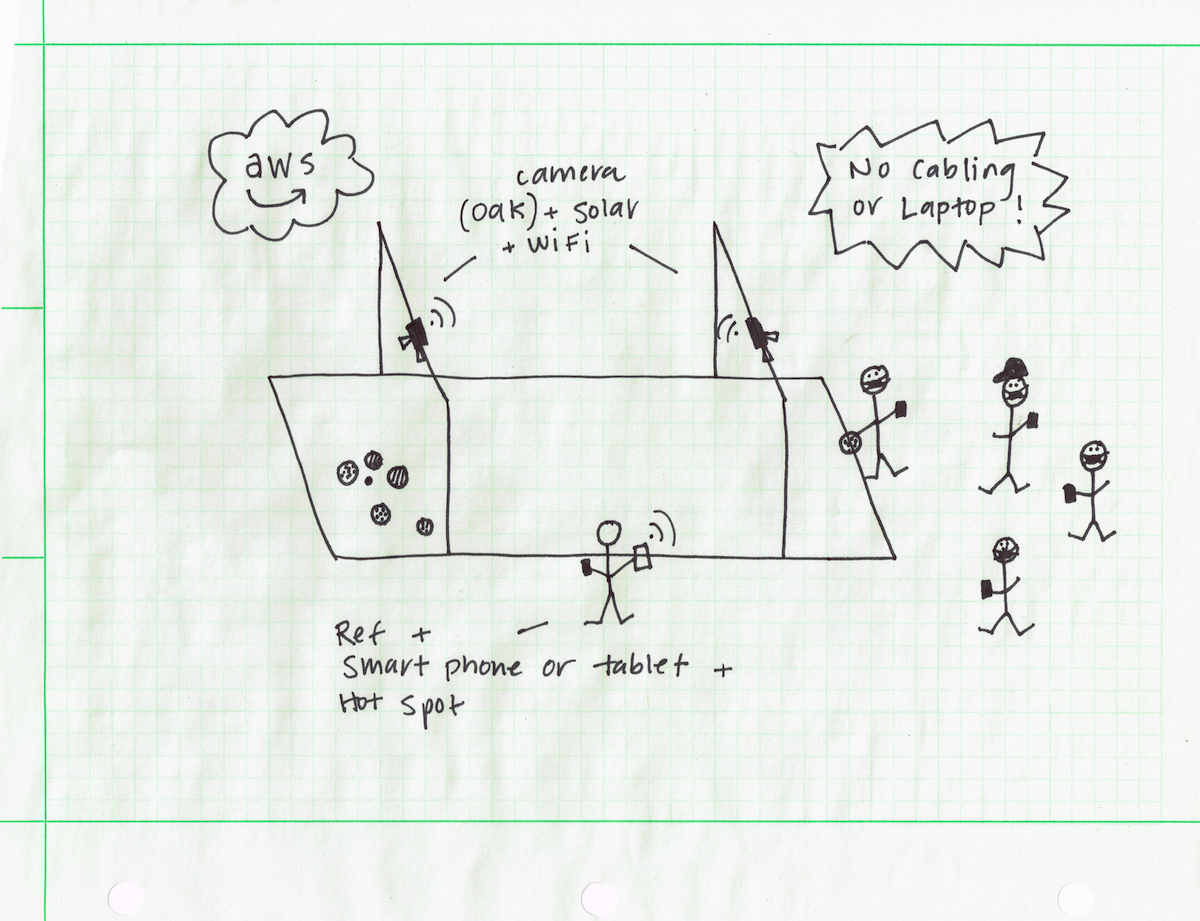 aws
camera
(OAK) + Solar
+ WiFi
No Cabling
or Laptop!
Ref +
Smart phone or tablet +
Hot Spot